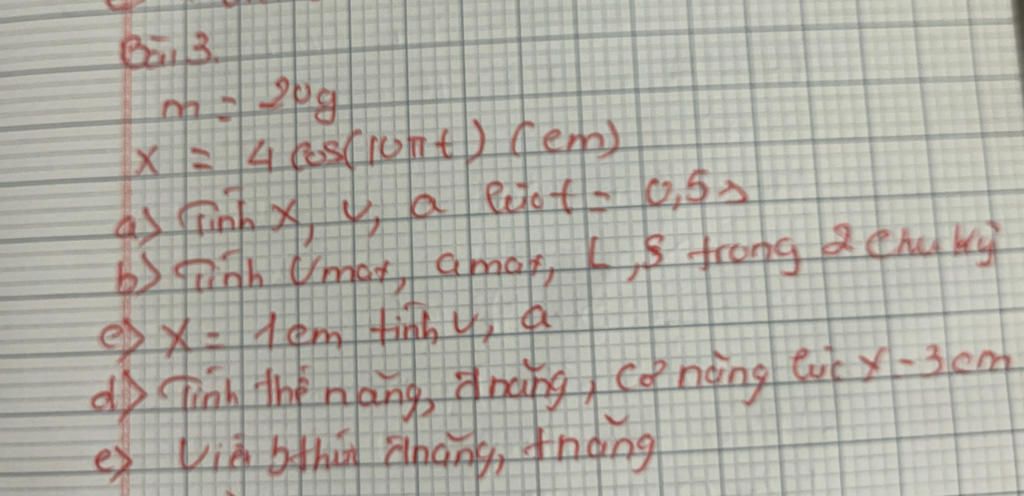 Bài 3.
m = 20g
x = 4 cos(10πt) (cm)
a) Tính x, v, a lúc t = 0,5s
b) Tính Vmax, amax, L, S trong 2 chu kỳ
c) x = 1cm tính v, a
d) Tính thế năng, đnăng, cơ năng lúc x = 3cm
e) Viết bthức đnăng, tnăng